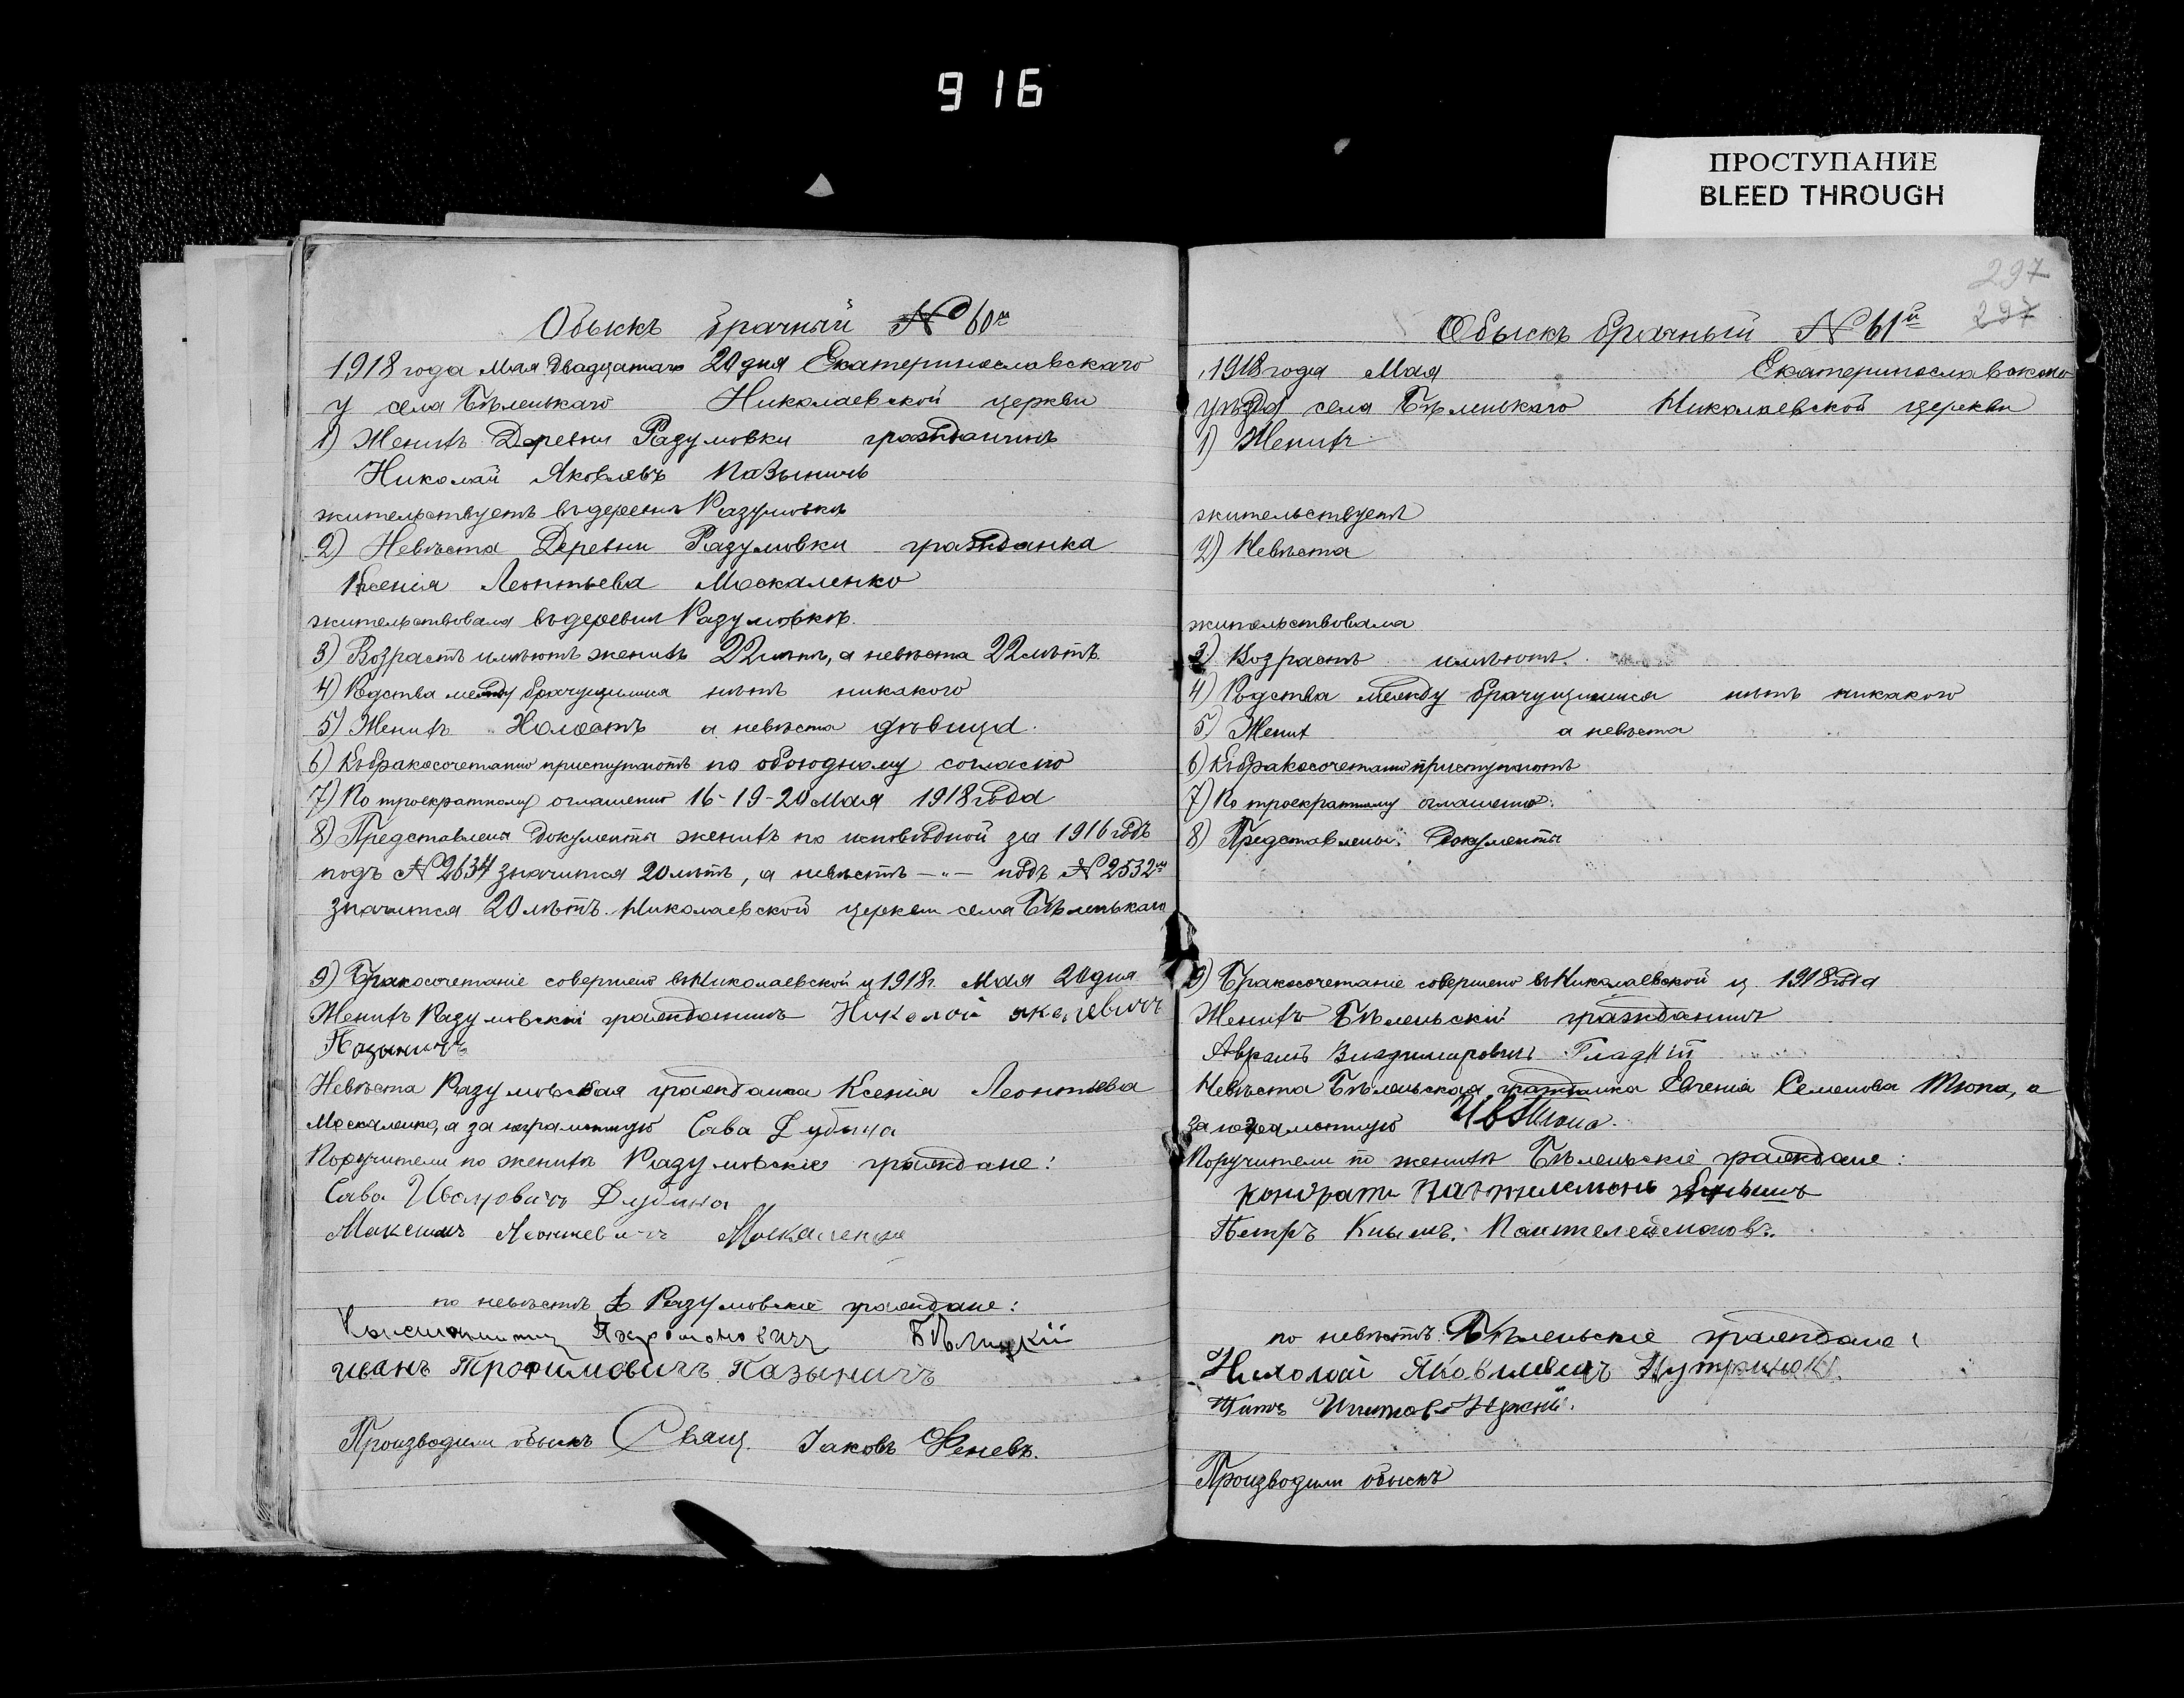 916
ПРОСТУПАНИЕ
BLEED THROUGH
Обыскъ брачный № 60й
1918 года Мая Двадцатаго 20 дня Екатеринославскаго
у села Бѣленькаго Николаевской церкви
1) Женихъ Деревни Разумовки гражданинъ
Николай Яковлевъ Пазыничъ
жительствуетъ въ деревнѣ Разумовкѣ
2) Невѣста Деревни Разумовки гражданка
Ксенія Леонтьева Москаленко
жительствовала въ деревнѣ Разумовкѣ.
3) Возрастъ имѣютъ женихъ 22 лѣтъ, а невѣста 22 лѣтъ.
4) Родства между брачущимися нѣтъ никакого
5) Женихъ Холостъ а невѣста дѣвица.
6) Къ бракосочетанію приступаютъ по обоюдному согласію
7) По троекратному оглашенію 16-19-20 Мая 1918 года
8) Представлены Документы женихъ по исповѣдной за 1916 годъ
подъ № 2634 значится 20 лѣтъ, а невѣстѣ —"— подъ № 2532м
значится 20 лѣтъ. Николаевской церкви села Бѣленькаго
9) Бракосочетаніе совершено въ Николаевской ц 1918 г. Мая 20 дня
Женихъ Разумовскій гражданинъ Николай
Пазыничъ
Невѣста Разумовская гражданка Ксенія Леонтьева
Москаленко, а за неграмотную Сава Дубина
Поручители по женихѣ Разумовскіе граждане:
Сава Ивановичъ Дубина
Максимъ Леонтевичъ Москаленко
по невѣстѣ Разумовскіе граждане:
Бѣлицкій
иванъ Трофимовичъ Пазыничъ
Производили обыскъ Свящ. Іаковъ
297
297
Обыскъ брачный № 61й
1918 года Мая Екатеринославскаго
уѣзда села Бѣленькаго Николаевской церкви
1) Женихъ
жительствуетъ
2) Невѣста
жительствовала
3) Возрастъ имѣютъ.
4) Родства между брачущимися нѣтъ никакого
5) Женихъ а невѣста
6) Къ бракосочетанію приступаютъ
7) По троекратному оглашенію.
8) Представлены: Документы
9) Бракосочетаніе совершено въ Николаевской ц. 1918 года
Женихъ Бѣленьскій гражданинъ
Авраамъ Владимировичъ Гладкій
Невѣста Бѣленьская гражданка Евгенія Семенова Тюпа, а
за неграмотную
Поручители по женихѣ Бѣленьскіе граждане:
кондратъ
Петръ Пантелеймоновъ.
по невѣстѣ Бѣленьскіе граждане:
Николай Яковлевичъ
Титъ
Производили обыскъ